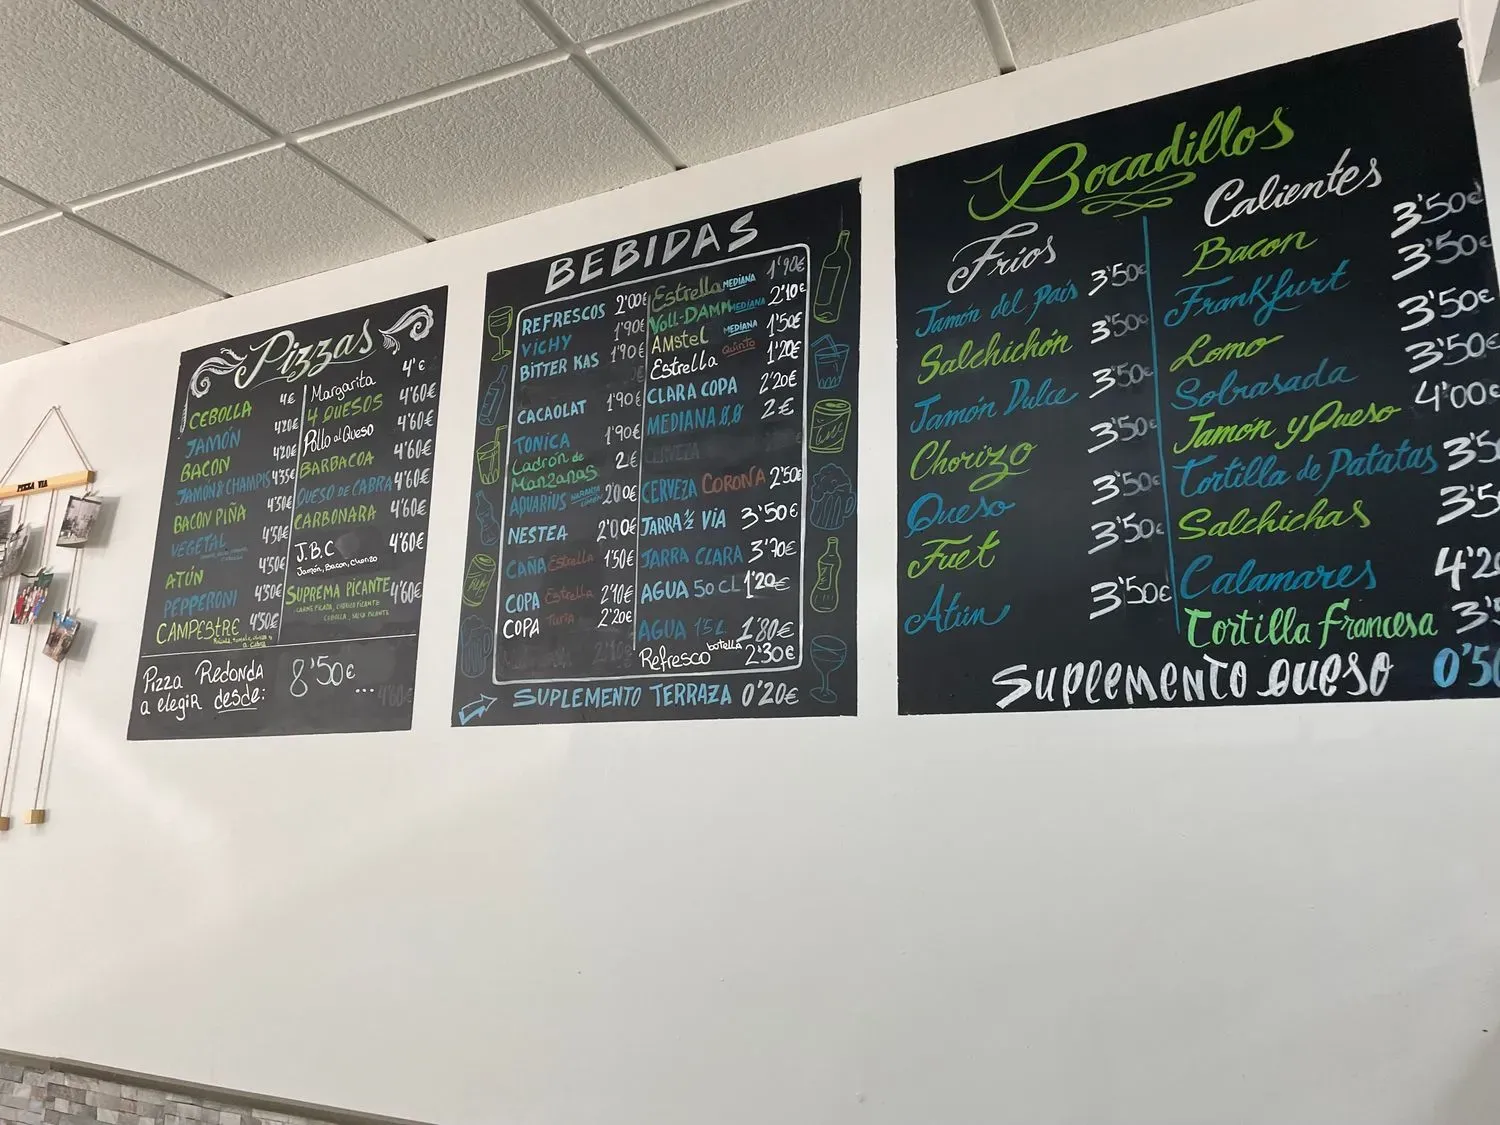 PIZZA VIA
Pizzas
CEBOLLA 4€
JAMÓN 4'20€
BACON 4'20€
JAMON&CHAMPIS 4'35€
BACON PIÑA 4'50€
VEGETAL 4'50€
ATÚN 4'50€
PEPPERONI 4'50€
CAMPESTRE 4'50€
Margarita 4'€
4 QUESOS 4'60€
Pollo al Queso 4'60€
BARBACOA 4'60€
QUESO DE CABRA 4'60€
CARBONARA 4'60€
J.B.C 4'60€
Jamón, Bacon, Chorizo
SUPREMA PICANTE 4'60€
CEBOLLA, SALSA PICANTE
Pizza Redonda
a elegir desde: 8'50€ ...
BEBIDAS
REFRESCOS 2'00€
VICHY 1'90€
BITTER KAS 1'90€
CACAOLAT 1'90€
TONICA 1'90€
Ladrón de
Manzanas 2€
AQUARIUS NARANJA LIMÓN 2'00€
NESTEA 2'00€
CAÑA Estrella 1'50€
COPA Estrella 2'10€
COPA Turia 2'20€
Estrella MEDIANA 1'90€
VOLL-DAMM MEDIANA 2'10€
AMstel MEDIANA 1'50€
Estrella Quinto 1'20€
CLARA COPA 2'20€
MEDIANA 0,0 2€
CERVEZA
CERVEZA COROÑA 2'50€
JARRA ½ VIA 3'50€
JARRA CLARA 3'70€
AGUA 50 CL 1'20€
AGUA 1'5 L. 1'80€
Refresco botella 2'30€
SUPLEMENTO TERRAZA 0'20€
Bocadillos
Fríos
Jamón del País 3'50€
Salchichón 3'50€
Jamón Dulce 3'50€
Chorizo 3'50€
Queso 3'50€
Fuet 3'50€
Atún 3'50€
Calientes
Bacon 3'50€
Frankfurt 3'50€
Lomo 3'50€
Sobrasada 3'50€
Jamón y Queso 4'00€
Tortilla de Patatas 3'5
Salchichas 3'5
Calamares 4'20
Tortilla Francesa 3'5
SUPLEMENTO QUESO 0'50